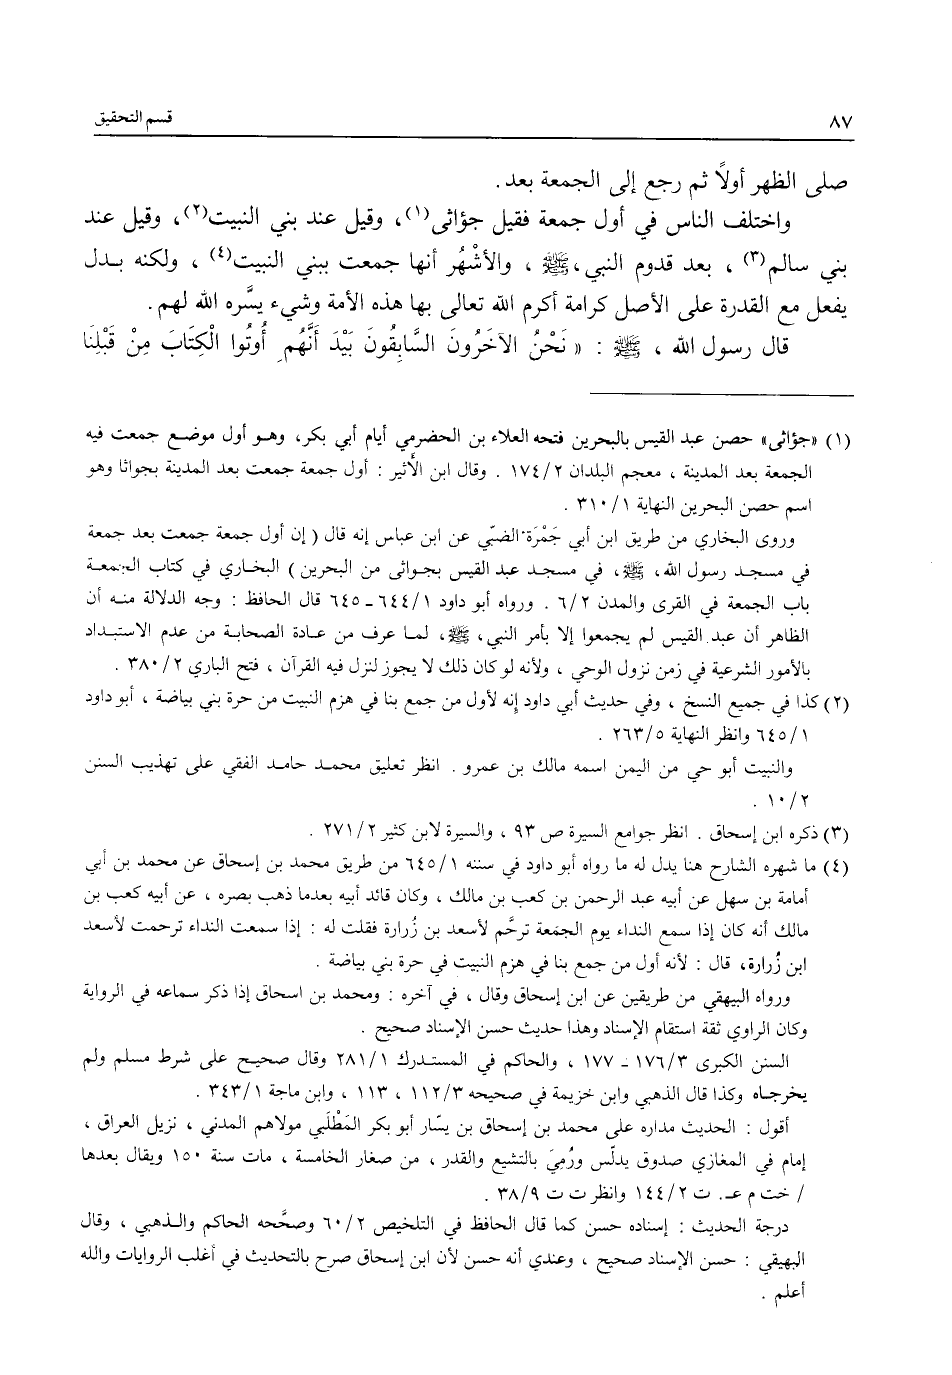 ٨٧ قسم التحقيق
صلى الظهر أولاً ثم رجع إلى الجمعة بعد.
واختلف الناس في أول جمعة فقيل جؤاثى(١)، وقيل عند بني النبيت(٢)، وقيل عند
بني سالم(٣) ، بعد قدوم النبي، ﷺ ، والأشْهُر أنها جمعت ببني النبيت(٤) ، ولكنه بـدل
يفعل مع القدرة على الأصل كرامة أكرم الله تعالى بها هذه الأمة وشيء يسَّره الله لهم.
قال رسول الله ، ﷺ : « نَحْنُ الآخَرُونَ السَّابِقُونَ بَيْدَ أَنَّهُم ِ أُوتُوا الْكِتَابَ مِنْ قَبْلِنَا
(١) «جؤاثى» حصن عبد القيس بالبحرين فتحه العلاء بن الحضرمي أيام أبي بكر، وهـو أول موضـع جمعت فيه
الجمعة بعد المدينة ، معجم البلدان ١٧٤/٢ . وقال ابن الأثير : أول جمعة جمعت بعد المدينة بجواثا وهو
اسم حصن البحرين النهاية ٣١٠/١ .
وروى البخاري من طريق ابن أبي جَمْرَة الضبّي عن ابن عباس إنه قال ( إن أول جمعة جمعت بعد جمعة
في مسجـد رسول الله، ﷺ، في مسجـد عبد القيس بجـواثى من البحرين ) البخـاري في كتاب الجمعـة
باب الجمعة في القرى والمدن ٦/٢ . ورواه أبو داود ٦٤٤/١ ـ ٦٤٥ قال الحافظ : وجه الدلالة منـه أن
الظاهر أن عبد القيس لم يجمعوا إلا بأمر النبي، ﷺ، لمـا عرف من عـادة الصحابـة من عدم الاستبـداد
بالأمور الشرعية في زمن نزول الوحي ، ولأنه لو كان ذلك لا يجوز لنزل فيه القرآن ، فتح الباري ٣٨٠/٢ .
(٢) كذا في جميع النسخ ، وفي حديث أبي داود إنه لأول من جمع بنا في هزم النبيت من حرة بني بياضة ، أبو داود
٦٤٥/١ وانظر النهاية ٢٦٣/٥ .
والنبيت أبو حي من اليمن اسمه مالك بن عمرو . انظر تعليق محمـد حامـد الفقي على تهذيب السنن
١٠/٢ .
(٣) ذكره ابن إسحاق . انظر جوامع السيرة ص ٩٣ ، والسيرة لابن كثير ٢٧١/٢ .
(٤) ما شهره الشارح هنا يدل له ما رواه أبو داود في سننه ٦٤٥/١ من طريق محمد بن إسحاق عن محمد بن أبي
أمامة بن سهل عن أبيه عبد الرحمن بن كعب بن مالك ، وكان قائد أبيه بعدما ذهب بصره ، عن أبيه كعب بن
مالك أنه كان إذا سمع النداء يوم الجمَعة ترحَّم لأسعد بن زُرارة فقلت له : إذا سمعت النداء ترحمت لأسعد
ابن زُرارة، قال : لأنه أول من جمع بنا في هزم النبيت في حرة بني بياضة .
ورواه البيهقي من طريقين عن ابن إسحاق وقال ، في آخره : ومحمد بن اسحاق إذا ذكر سماعه في الرواية
وكان الراوي ثقة استقام الإسناد وهذا حديث حسن الإسناد صحيح .
السنن الكبرى ١٧٦/٣ ـ ١٧٧ ، والحاكم في المستـدرك ٢٨١/١ وقال صحيـح على شرط مسلم ولم
يخرجـاه وكذا قال الذهبي وابن خزيمة في صحيحه ١١٢/٣ ، ١١٣ ، وابن ماجة ٣٤٣/١ .
أقول : الحديث مداره على محمد بن إسحاق بن يسّار أبو بكر المَطْلَبي مولاهم المدني ، نزيل العراق ،
إمام في المغازي صدوق يدلّس ورُمِيَ بالتشيع والقدر ، من صغار الخامسة ، مات سنة ١٥٠ ويقال بعدها
/ خت م عـ. ت ١٤٤/٢ وانظر ت ت ٣٨/٩ .
درجة الحديث : إسناده حسن كما قال الحافظ في التلخيص ٦٠/٢ وصحَّحه الحاكم والـذهبي ، وقال
البهيقي : حسن الإسناد صحيح ، وعندي أنه حسن لأن ابن إسحاق صرح بالتحديث في أغلب الروايات والله
أعلم .